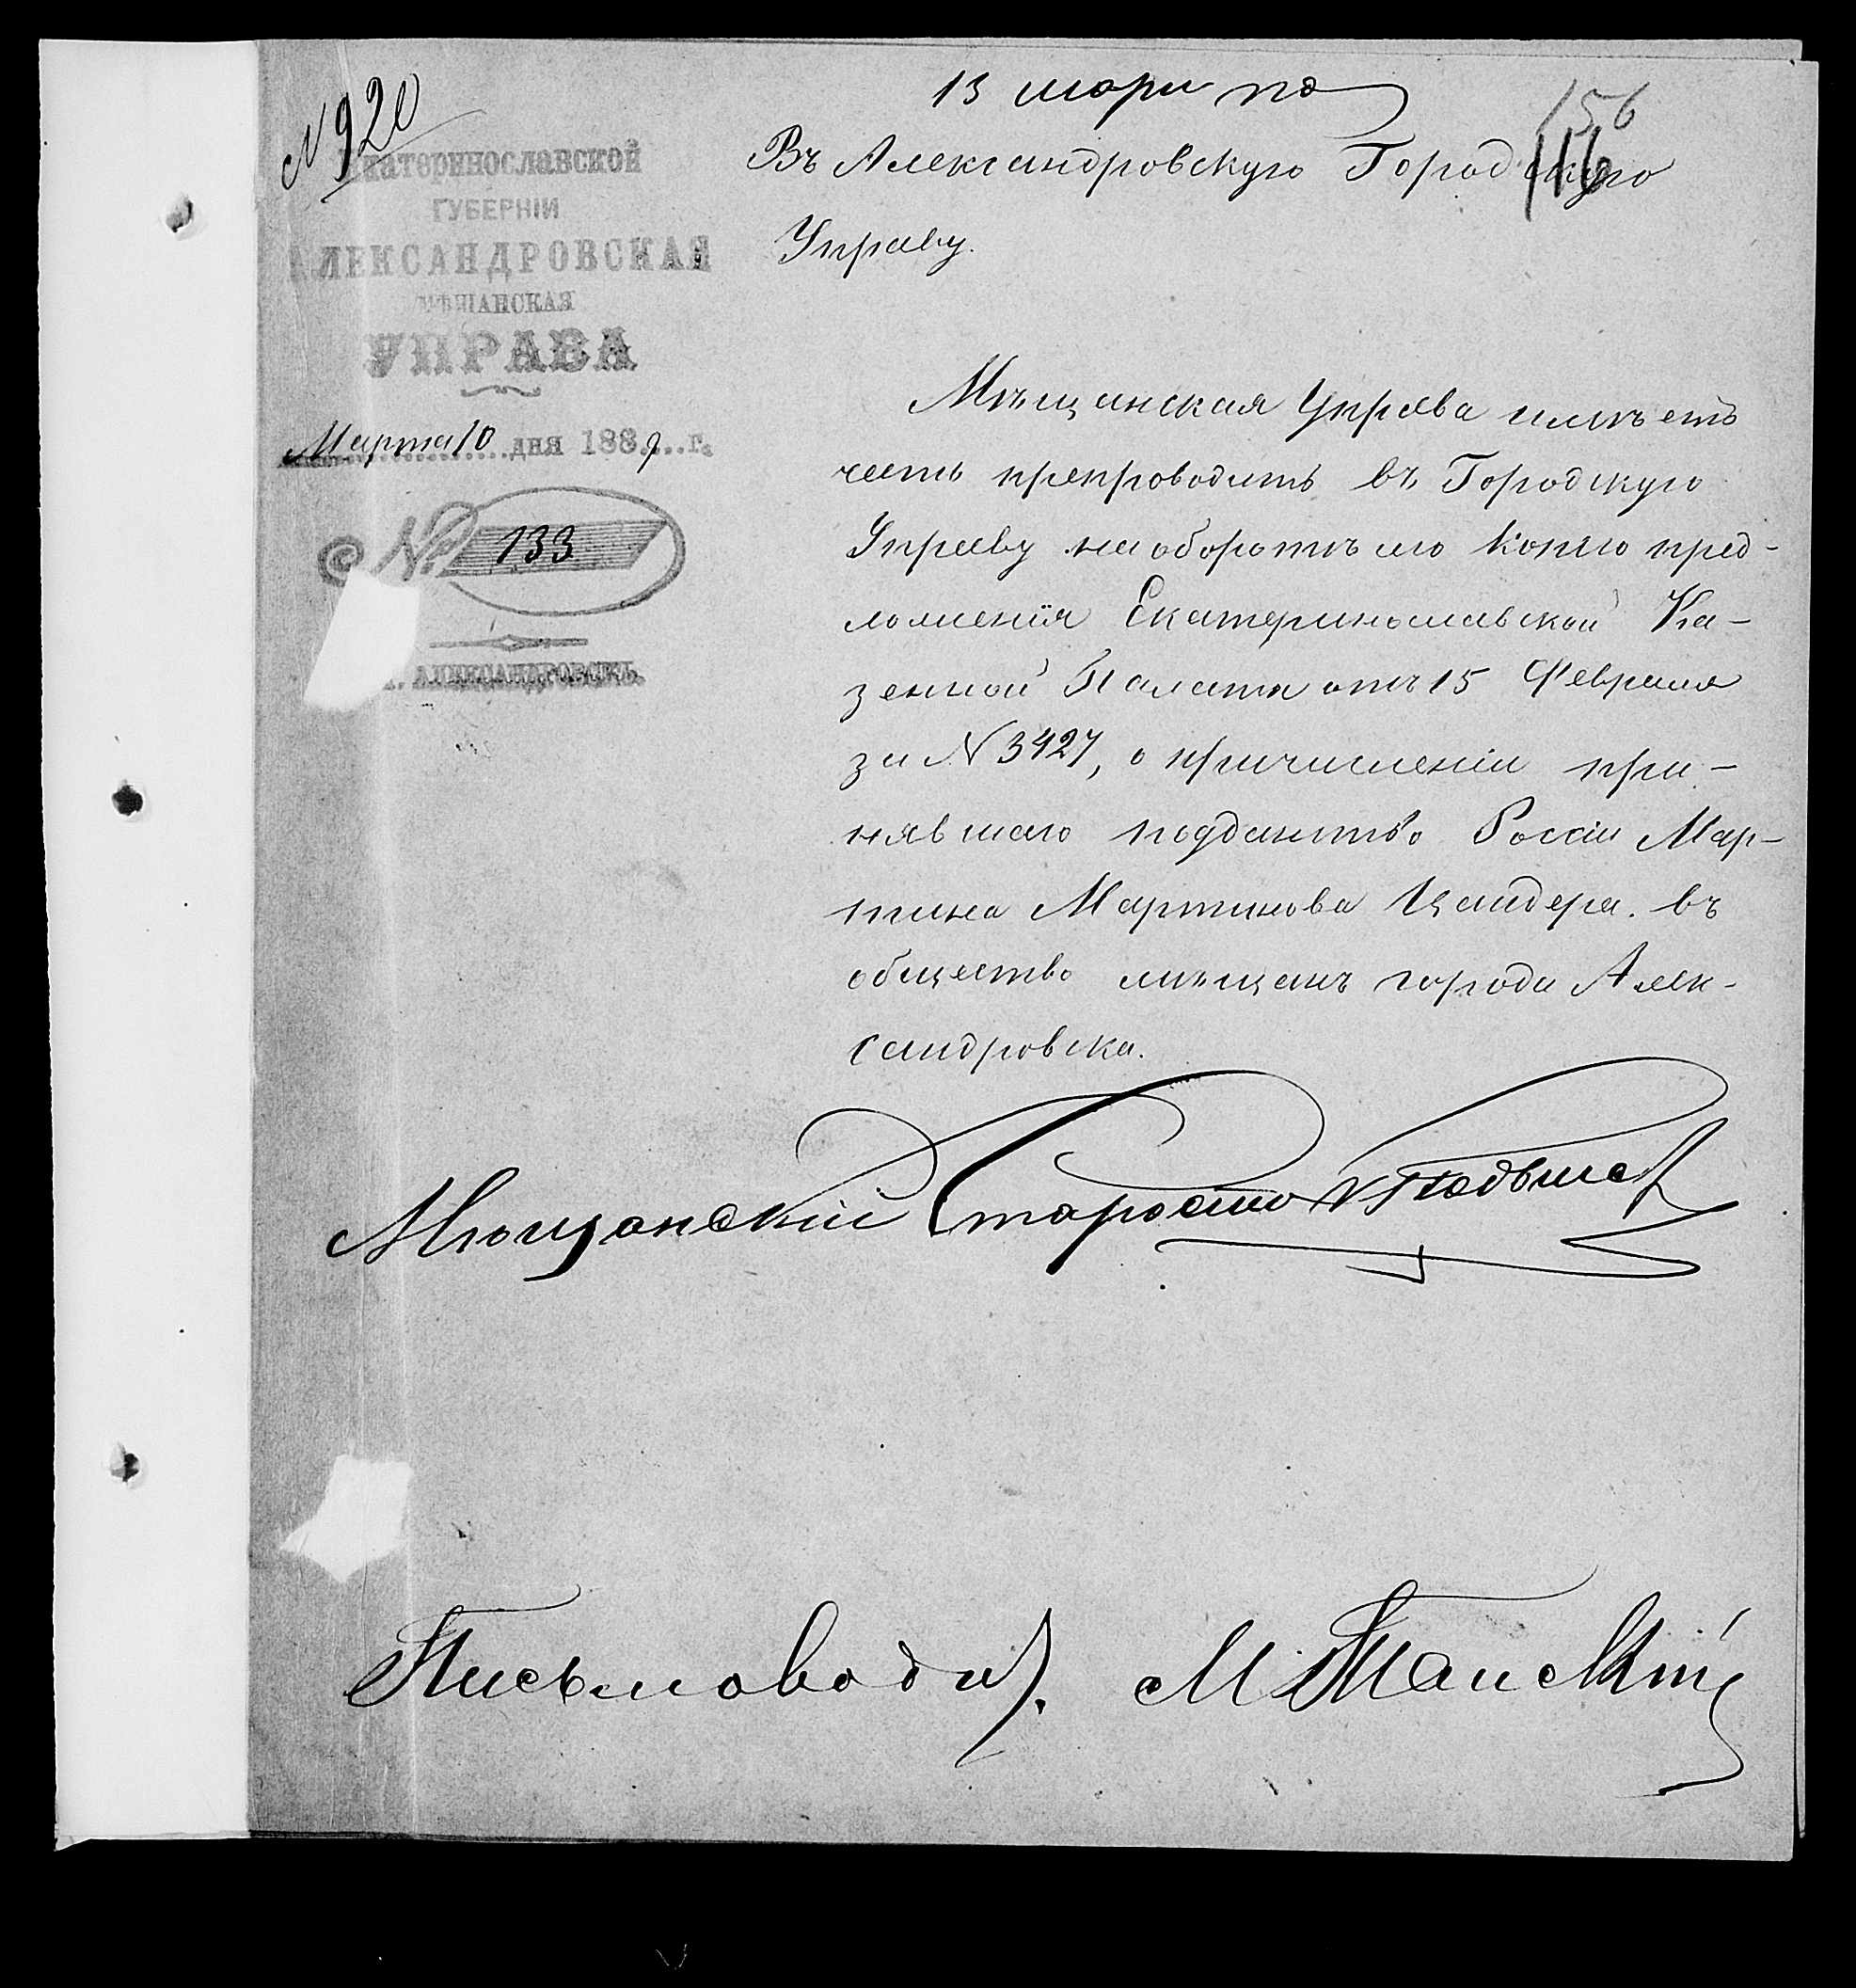 № 920
13 марта
156
116
Екатеринославской
ГУБЕРНІИ
АЛЕКСАНДРОВСКАЯ
МѢЩАНСКАЯ
УПРАВА
Марта 10 дня 1889 г.
№ 133
Г. АЛЕКСАНДРОВСКЪ.
Въ Александровскую Городскую
Управу.
Мѣщанская Управа имѣетъ
честь препроводить въ Городскую
Управу на оборотѣ сего копію пред-
ложенія Екатеринославской Ка-
зенной Палаты отъ 15 Февраля
за № 3427, о причисленіи при-
нявшаго подданство Россіи Мар-
тина Мартинова Цандера. въ
общество мѣщанъ города Алек-
сандровска.
Мѣщанскій Староста
Письмоводит.